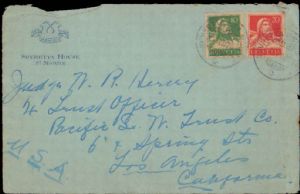 SUVRETTA HOUSE
ST. MORITZ
10
20
HELVETIA
HELVETIA
Judge W. R. Hervey
% Trust Officer
Pacific S. W. Trust Co.
6th & Spring Sts
Los Angeles
California
U.S.A